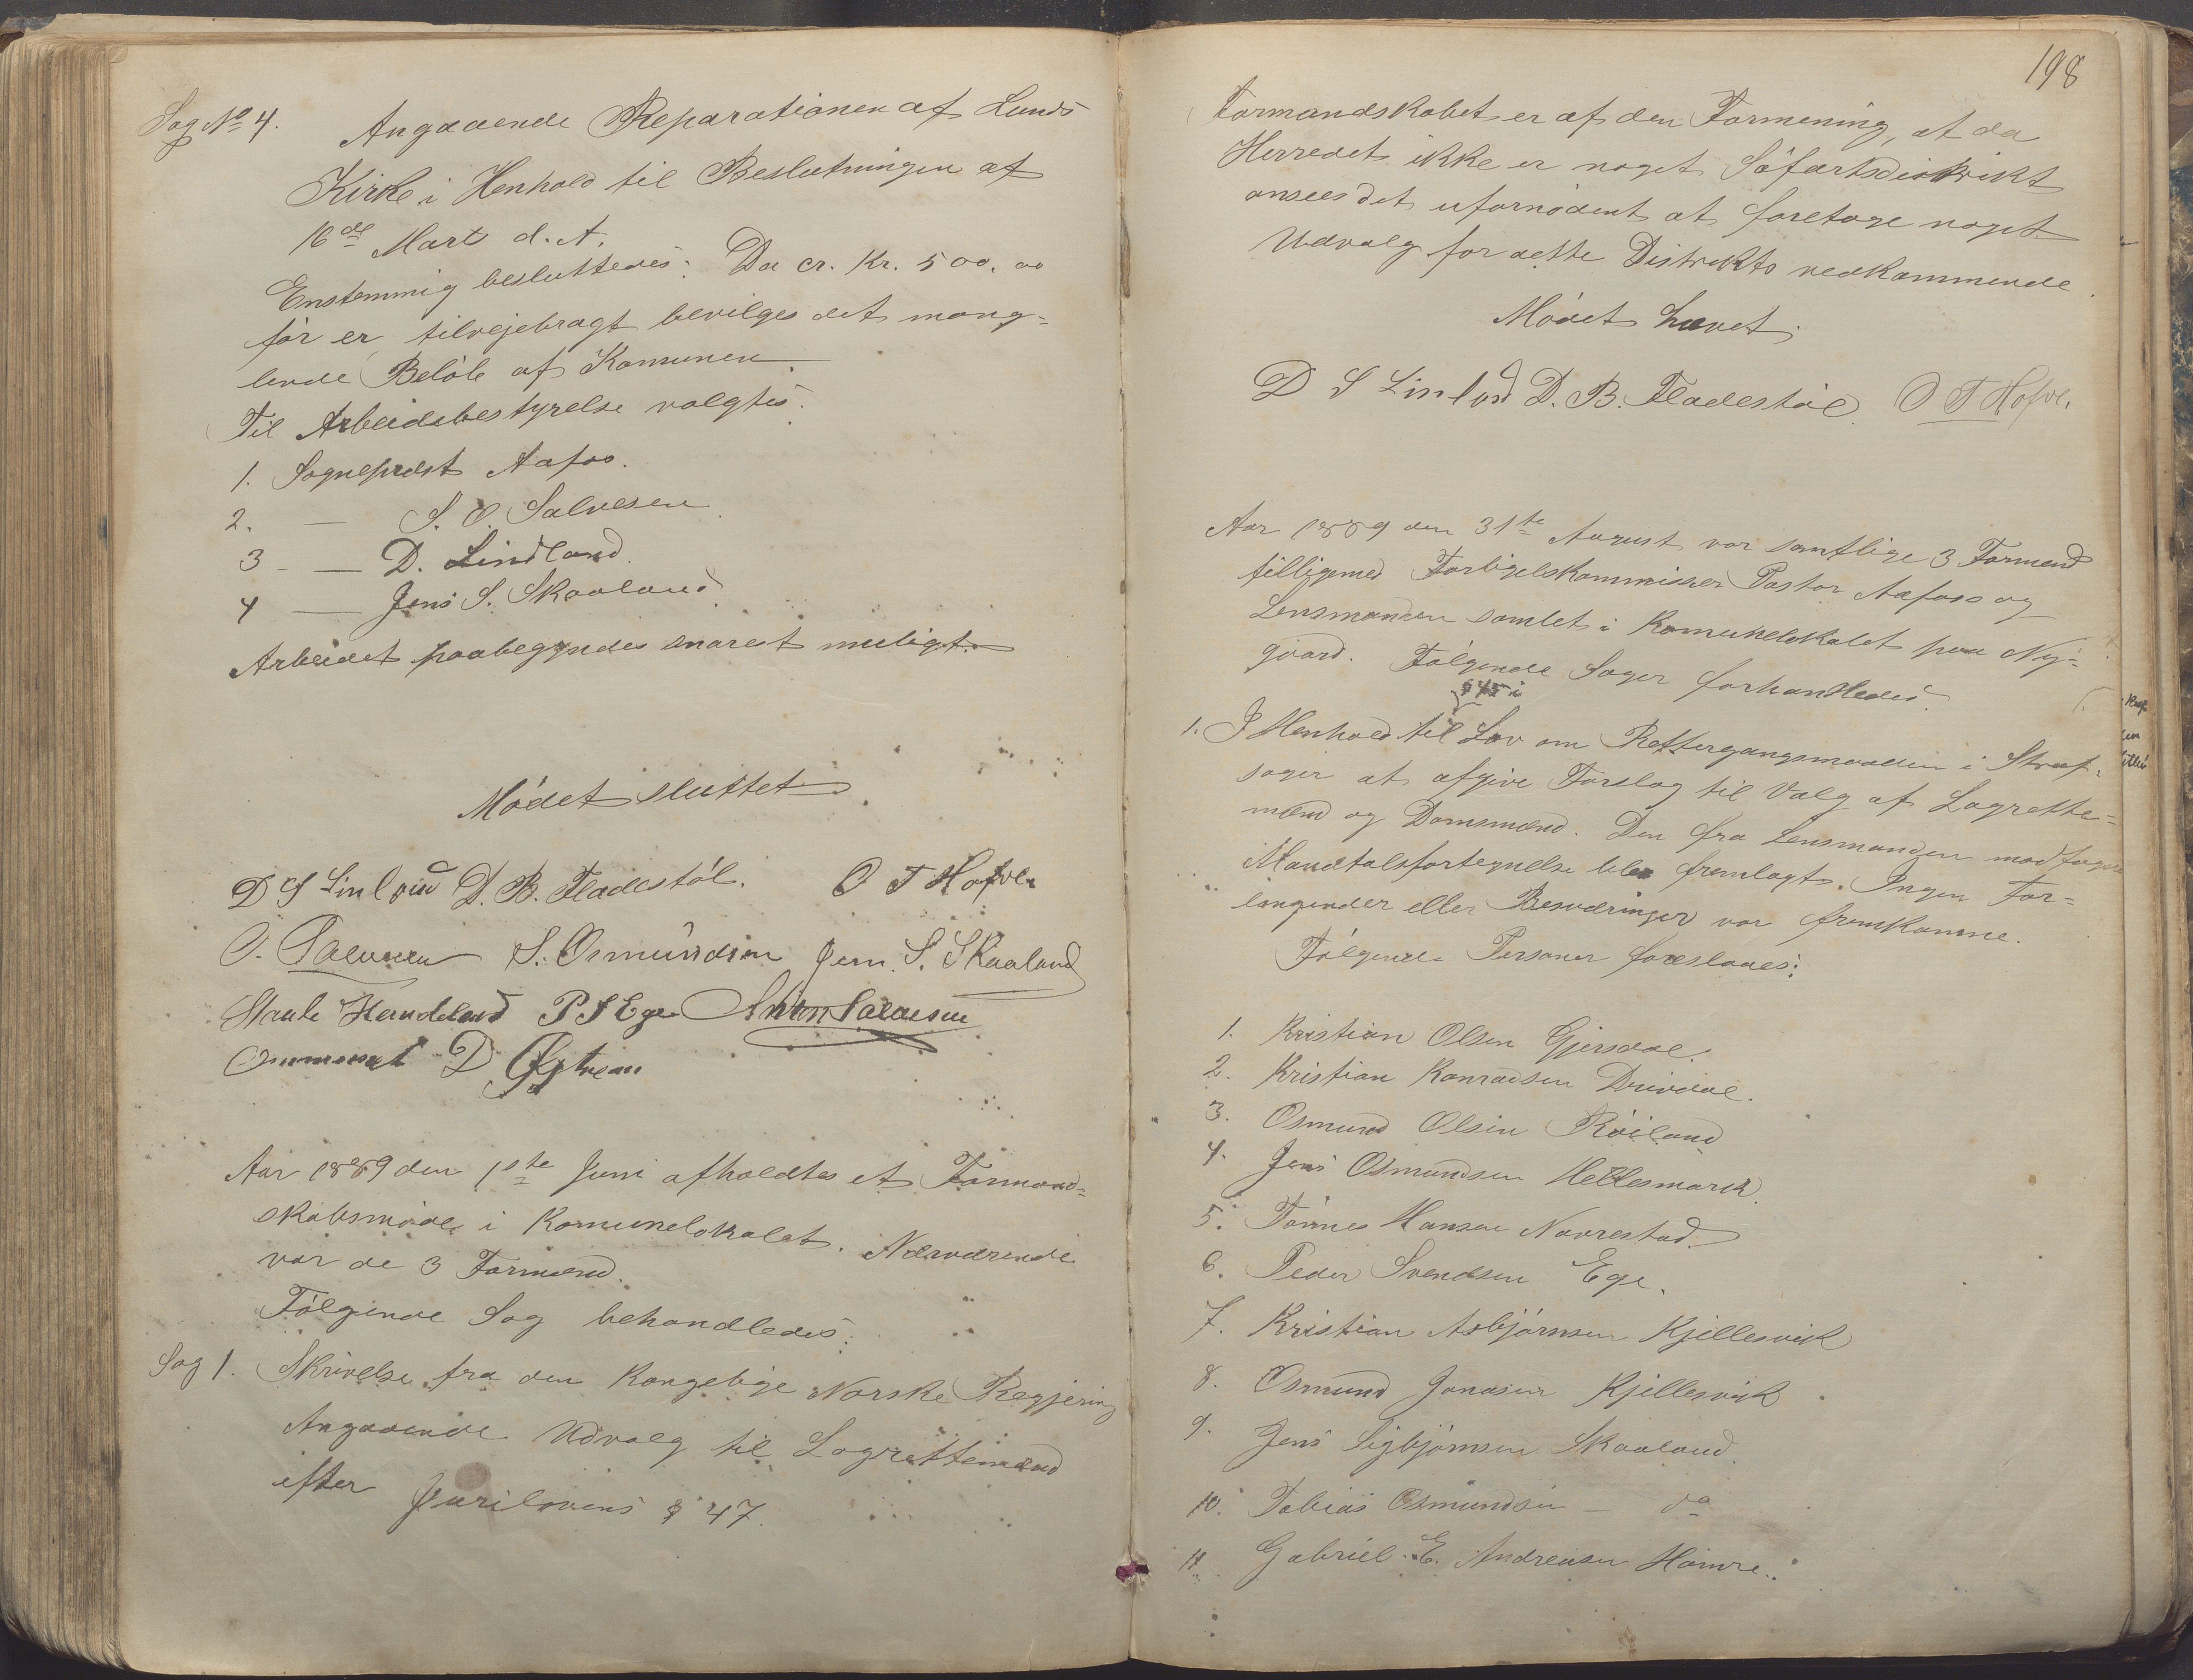 Sag No 4. Angaaende Reparationen af Lunds
Kirke i Henhold til Beslutningen af
16de Marts d. A.
Enstemmig besluttedes: Da cr. Kr. 500,00
før er tilvejebragt bevilges det mang=
lende Beløb af Komunen.
Til Arbeidsbestyrelse valgtes:
1. Sogneprest Aafos.
2. — S. O. Salvesen
3 — D. Lindland.
4 — Jens S. Skaaland.
Arbeidet paabegyndes snarest muligt.
Mødet sluttet.
D S Linland D. B. Fladestøl. O T Hofve.
O. Salvesen S. Osmundsen Jens. S. Skaaland
Staale Herudeland P S Ege Anton Salvesen
Ommund D Øgstrean
Aar 1889 den 1ste Juni afholdtes et Formand=
skabsmøde i Komunelokalet. Nærværende
var de 3 Formænd.
Følgende Sag behandledes:
Sag 1. Skrivelse fra den Kongelige Norske Regjering
Angaaende Udvalg til Lagrettemænd
efter Jurilovens § 47.
198
Formandskabet er af den Formening, at da
Herredet ikke er noget Søfartsdistrikt
ansees det ufornødent at foretage noget
Udvalg for dette Distrikts vedkommende.
Mødet hævet.
D S Linland D. B. Fladestøl. O T Hofve.
Aar 1889 den 31te August var samtlige 3 Formænd
tilligemed Forligelskommissær Pastor Aafoss og
Lensmanden samlet i Komunelokalet paa Ny=
gaard. Følgende Sager forhandledes.
§ 45 i
1. I Henhold til Lov om Rettergangsmaaden i Straf=
sager at afgive Forslag til Valg af Lagrette=
mænd og Domsmænd. Den fra Lensmanden modtagne
Mandtalsfortegnelse blev fremlagt. Ingen For=
langender eller Besværinger var fremkomne.
Følgende Personer foresloaes:
1. Kristian Olsen Gjersdal.
2. Kristian Konradsen Drivdal.
3. Osmund Olsen Røiland
4. Jens Osmundsen Hellesmark.
5. Tønnes Hansen Navrestad.
6. Peder Svendsen Ege.
7. Kristian Asbjørnsen Kjellesvik
8. Osmund Jonasen Kjellesvik
9. Jens Sigbjørnsen Skaaland.
10. Tobias Osmundsen — do
11. Gabriel E. Andreasen Hamre.